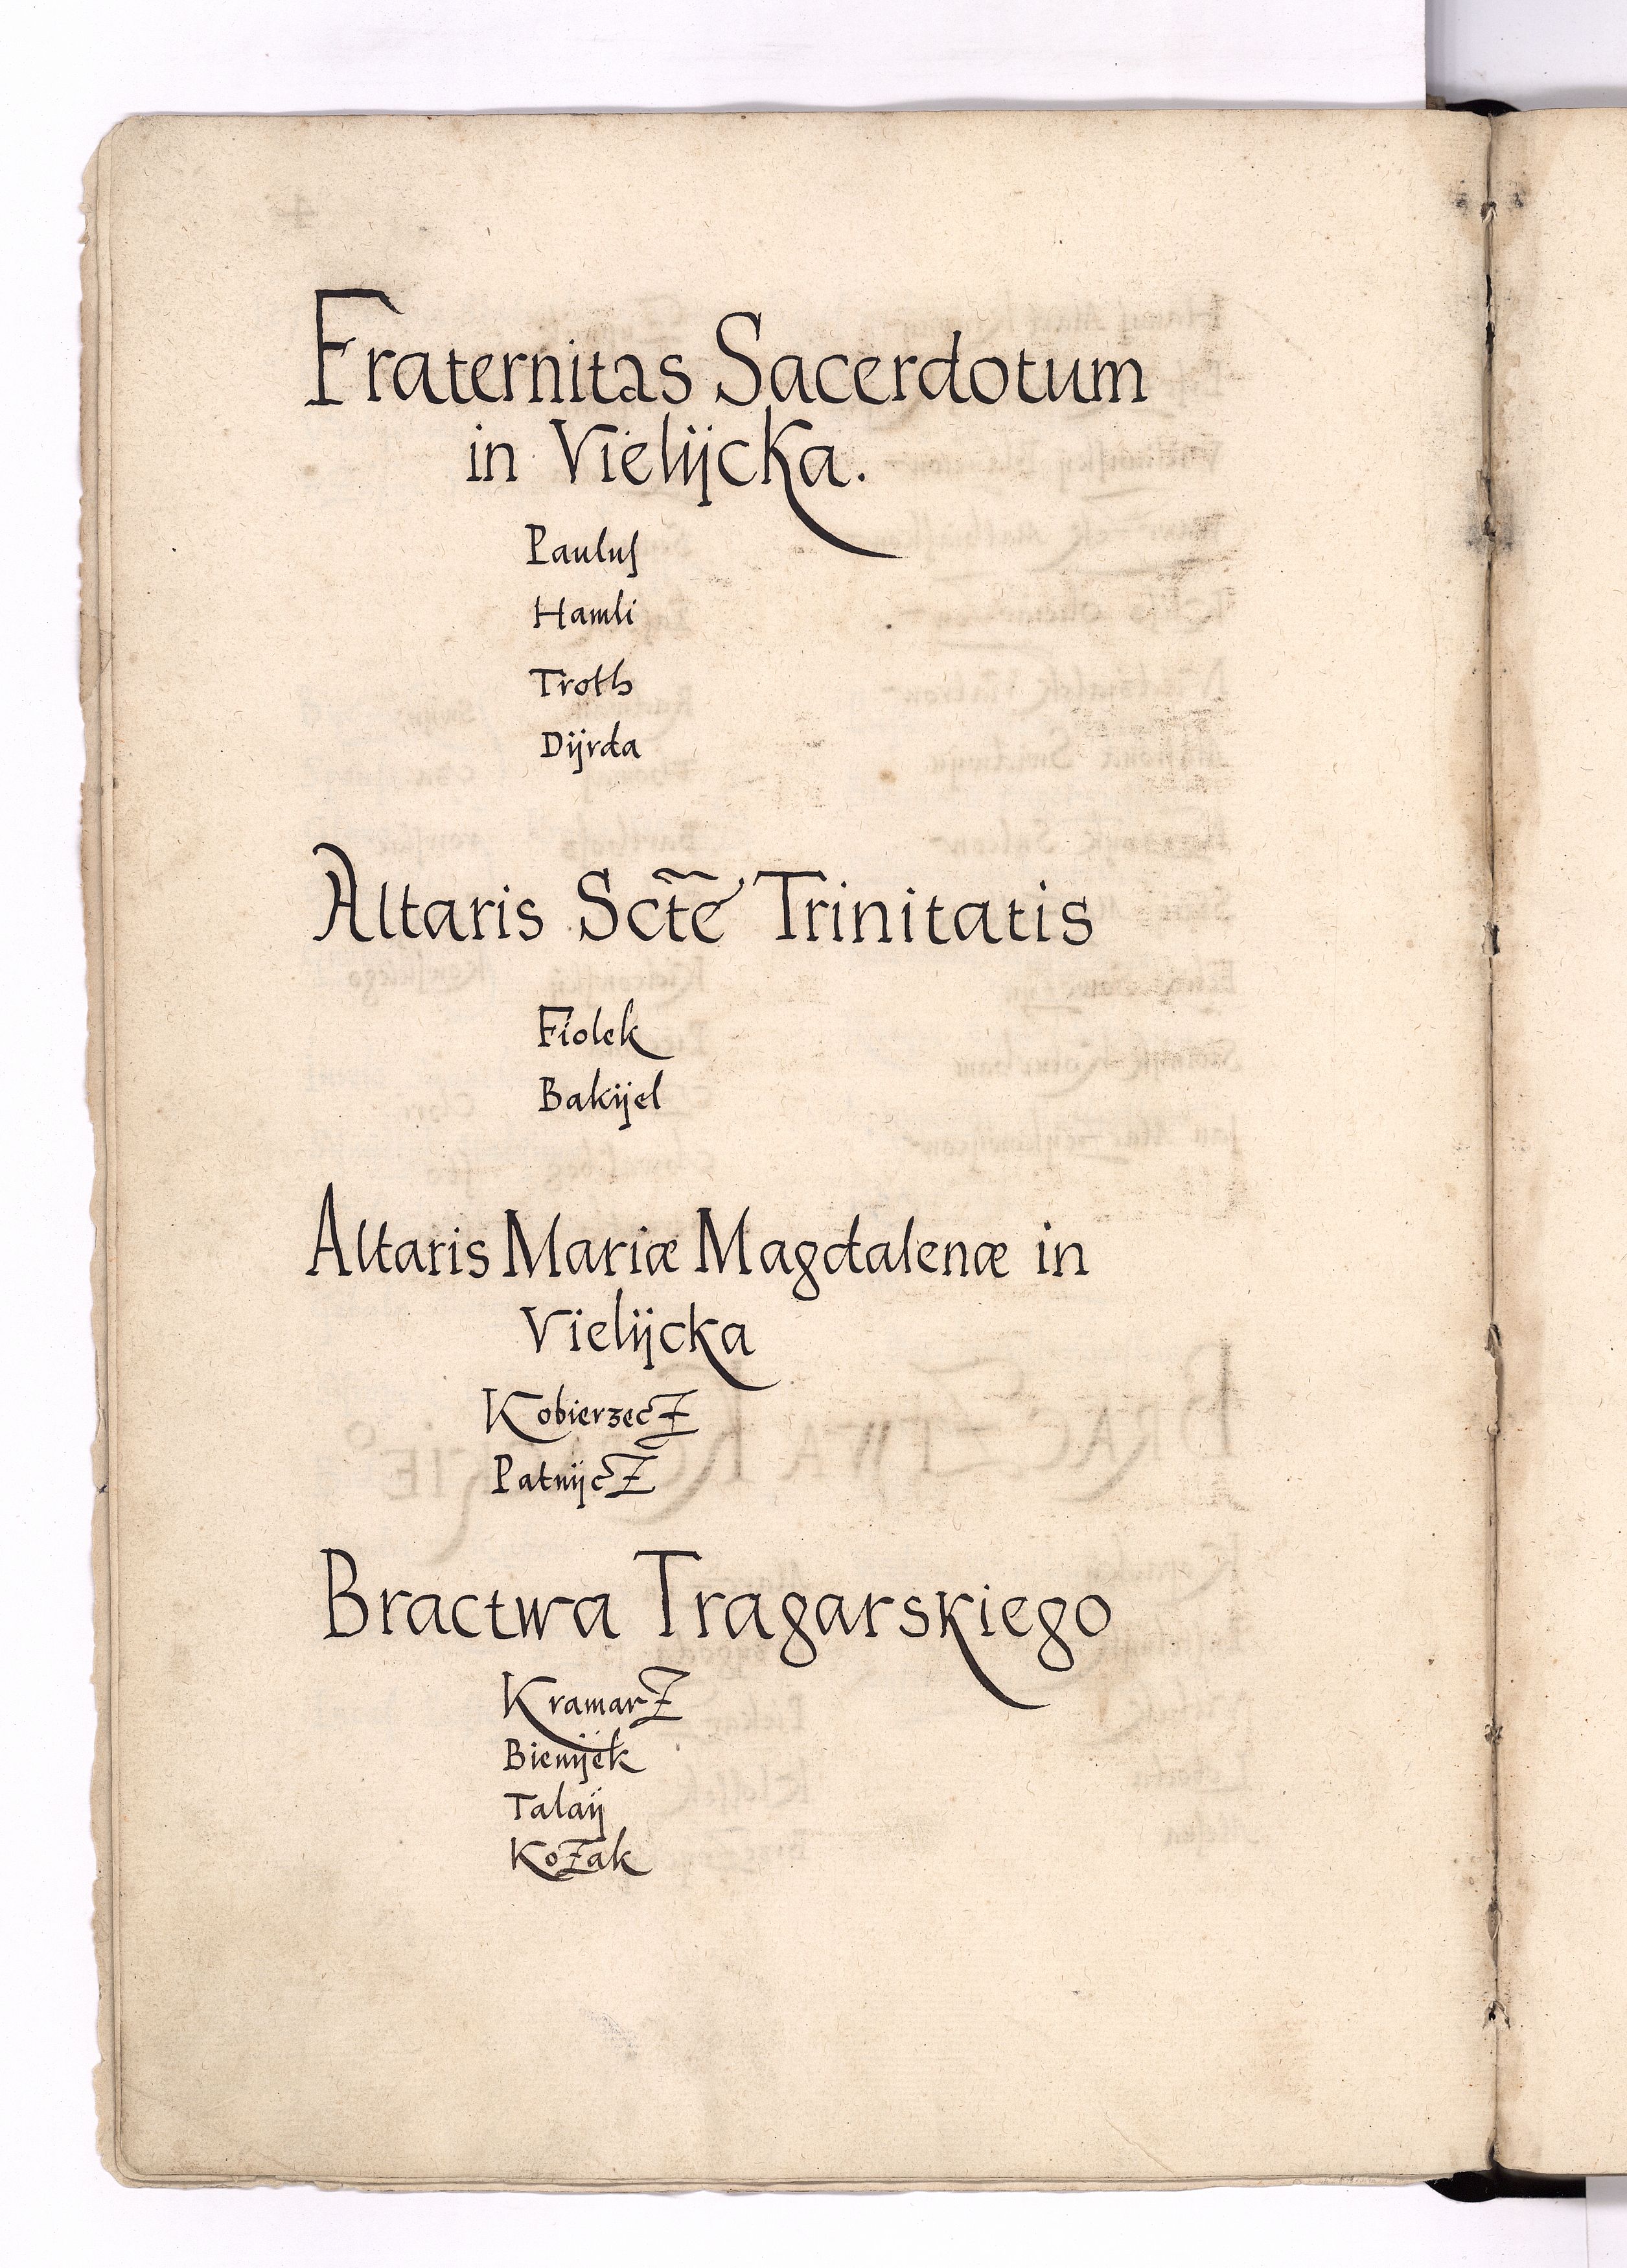 Fraternitas Sacerdotum
in Vielijcka.
Pauluſ
Hamli
Troth
Dijrda
Altaris Sctẽ Trinitatis
Fiolek
Bakijel
Altaris Mariæ Magdalenæ in
Vielijcka
KobierzecZ
PatnijcZ
Bractwa Tragarskiego
KramarZ
Bienijek
Talaij
KoZak